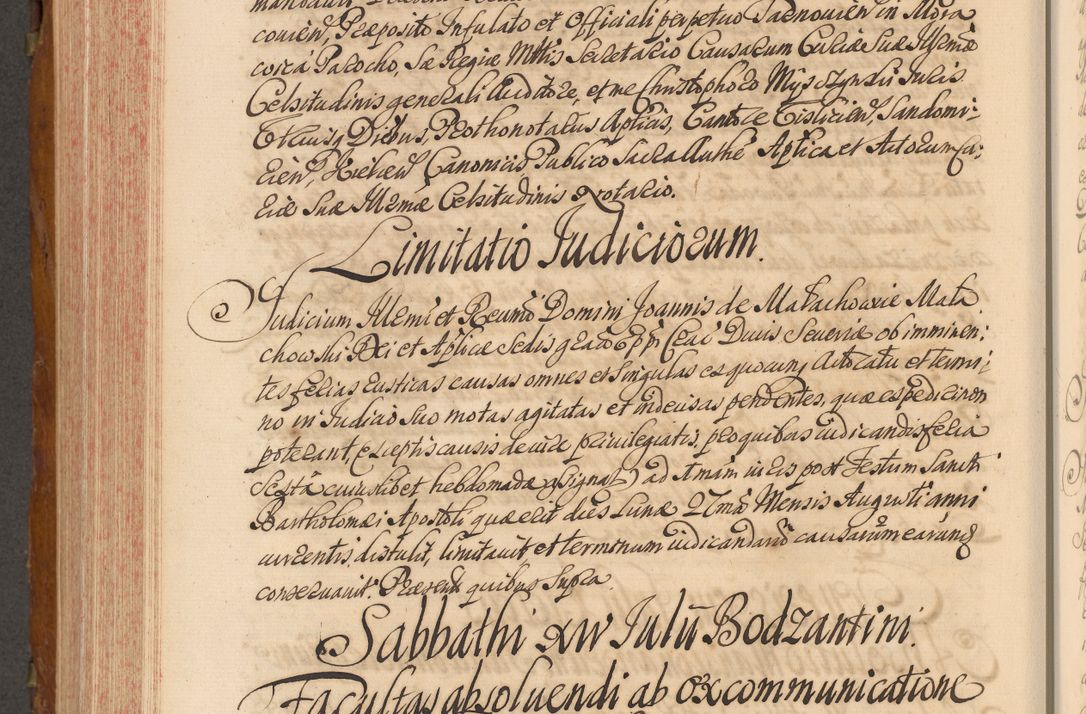 couien, Præposito Infulato et Officiali perpetuo Tarnouien in Mora
corca Parocho, Sæ Regiæ Mttis Secretario Causarum Curiæ Suæ Illsmæ
Celsitudinis generali Auditore, et me Christophoro Mysczynski Iuris
Utriusq Doctus, Prothonotarius Aplicis, Cantore Gislicien, Sandomi:
rien, Kielcen Canonicis Publico Sacra Authe Aplica et Actorum Cu:
riæ Suæ Illsmæ Celsitudinis Notario.
Limitatio Iudiciorum.
Iudicium Illsmi et Reumi Domini Joannis de Małachowice Mała
chowski Dei et Aplicæ Sedis grao Eppi Crac Ducis Seueriæ ob imminen:
tes ferias rusticas causas omnes et singulas ex quocunq Actocatu et termi:
no in Iudicio suo motas agitatas et indecisas pendentes, quæ expediri non
poterant, exceptis causis de iure priuilegiatis, pro quibus iudicandis feria
Sexta cuiuslibet hebdomadæ assignat ad imam iuris post Festum Sancti
Bartholomæi Apostoli quæ erit dies Lunæ 27ma Mensis Augusti anni
currentis, distulit, limitauit et terminum iudicandaru causarum earunq
conseruauit. Præsent quibus supra
Sabbathi XIV Iulii Bodzantini.
Facultas absoluendi ab excommunicatione